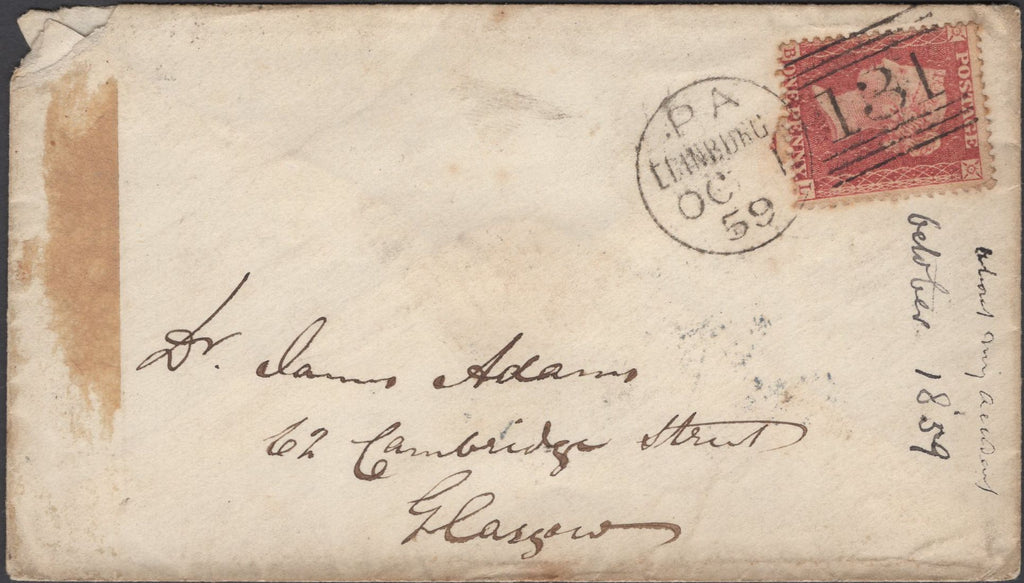 PA
EDINBURG
OC
59
131
POSTAGE
ONE PENNY
B L
Dr. James Adams
62 Cambridge Street
Glasgow
October 1859
about my accident